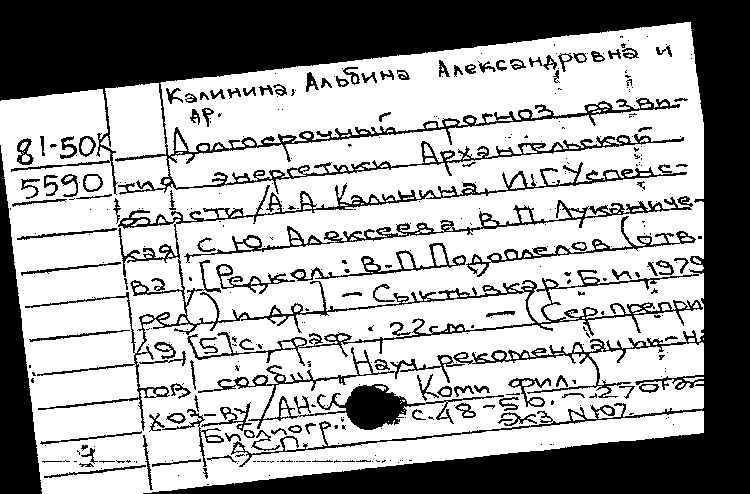 Калинина, Альбина Александровна и
др.
81-50К
Долгосрочный прогноз разви-
5590
тия энергетики Архангельской
области / А.А. Калинина, И.Г. Успенс-
кая, С.Ю. Алексеева, В.П. Луканиче-
ва ; [Редкол.: В.П. Подоплелов (отв.
ред.) и др.]. – Сыктывкар : Б.и., 1979
49, [5] с., граф. ; 22 см. – (Сер. препри
тов сообщ. Науч. рекомендации – н
хоз-ву / АН СС Коми фил.)
Библиогр.: с. 48-50.
Экз N107.
ДСП.